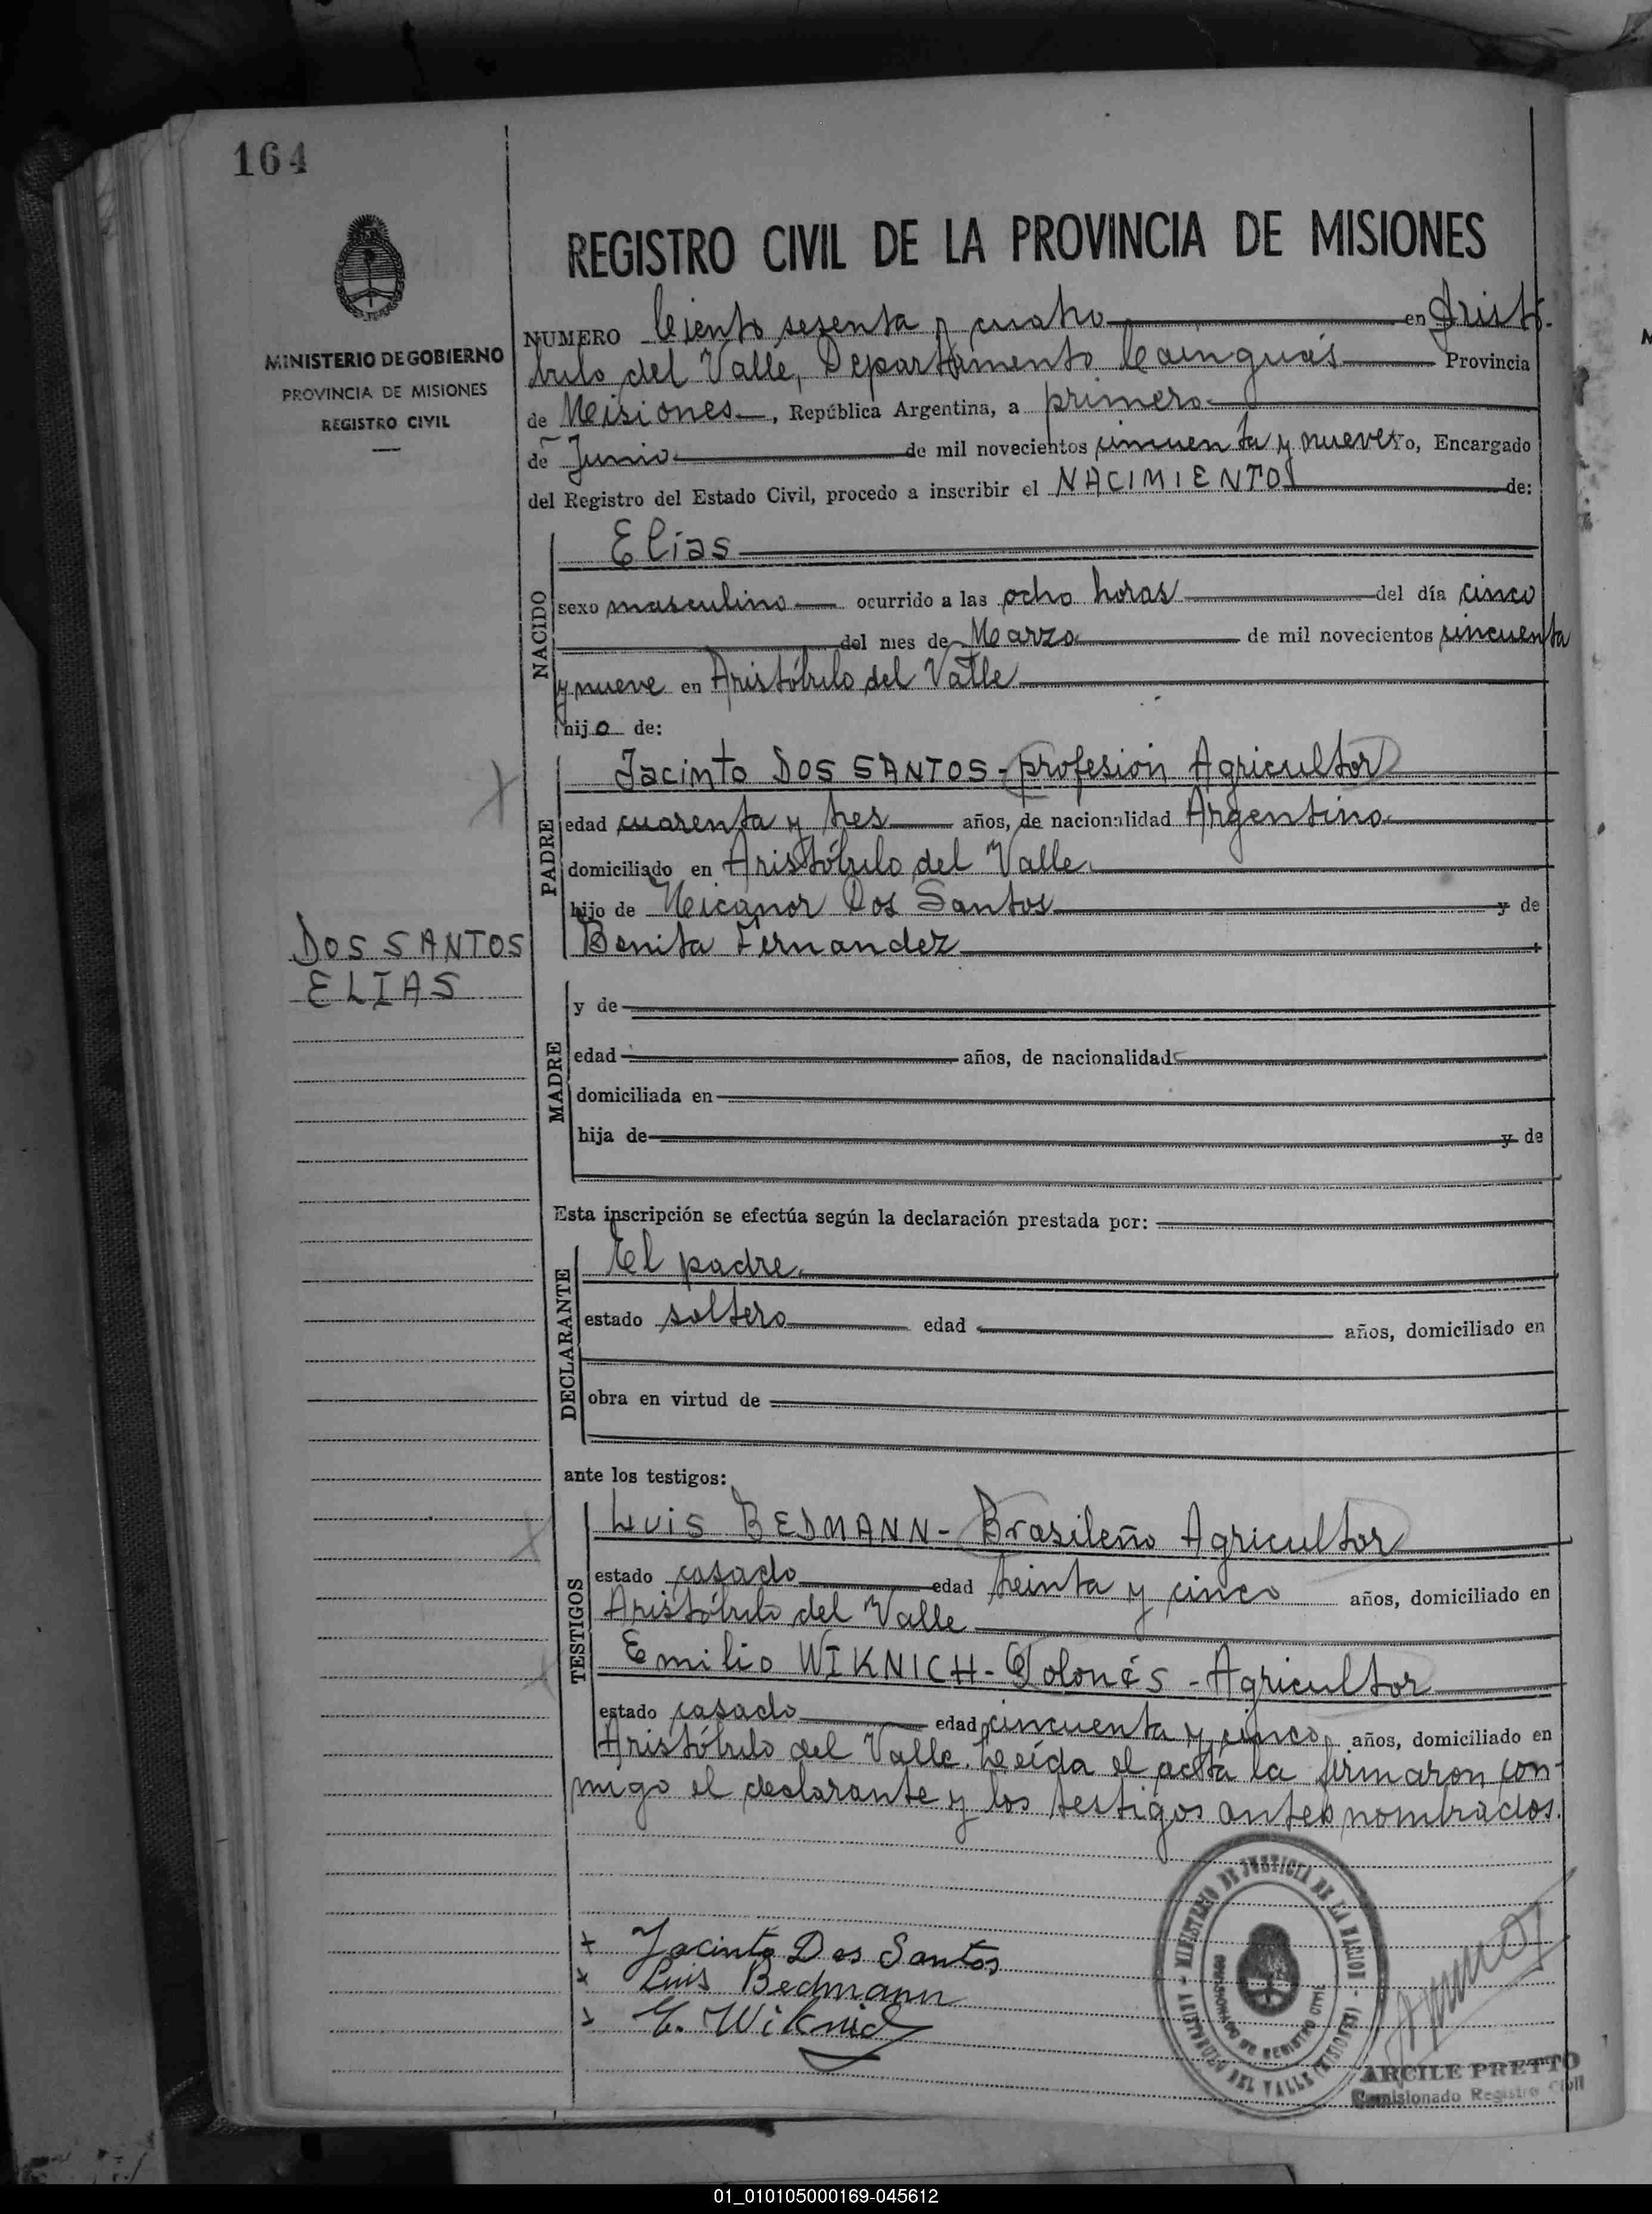 164
MINISTERIO DE GOBIERNO
PROVINCIA DE MISIONES
REGISTRO CIVIL
REGISTRO CIVIL DE LA PROVINCIA DE MISIONES
NUMERO Ciento sesenta y cuatro en Aristó-
bulo del Valle, Departamento Cainguás Provincia
de Misiones, República Argentina, a primero
de Junio de mil novecientos cincuenta y nueve yo, Encargado
del Registro del Estado Civil, procedo a inscribir el NACIMIENTO de:
NACIDO
Elías
sexo masculino ocurrido a las ocho horas del día cinco
del mes de Marzo de mil novecientos cincuenta
y nueve en Aristóbulo del Valle
hijo de:
PADRE
Jacinto DOS SANTOS - profesión Agricultor
edad cuarenta y tres años, de nacionalidad Argentino
domiciliado en Aristóbulo del Valle
hijo de Nicanor Dos Santos y de
Benita Fernandez
DOS SANTOS
ELIAS
MADRE
y de
edad años, de nacionalidad
domiciliada en
hija de y de
Esta inscripción se efectúa según la declaración prestada por:
DECLARANTE
El padre
estado soltero edad años, domiciliado en
obra en virtud de
ante los testigos:
TESTIGOS
Luis BEDMANN - Brasileño Agricultor
estado casado edad treinta y cinco años, domiciliado en
Aristóbulo del Valle
Emilio WIKNICH - Polonés - Agricultor
estado casado edad cincuenta y cinco años, domiciliado en
Aristóbulo del Valle. Leída el acta la firmaron con-
migo el declarante y los testigos antes nombrados.
Jacinto Dos Santos
Luis Bedmann
E. Wiknich
MINISTERIO DE JUSTICIA DE LA NACION - ARISTOBULO DEL VALLE (MISIONES) -
DE REGISTRO CIVIL
ARCILE PRETTO
Comisionado Registro Civil
01_010105000169-045612